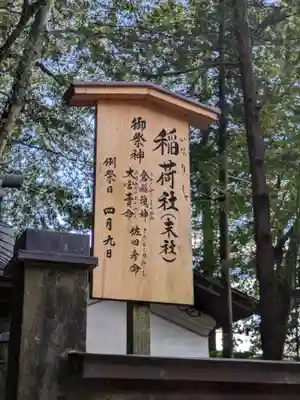 稲荷社(末社)
いなりしゃ
御祭神
倉稲魂神
大宮賣命 佐田彦命
例祭日 四月九日